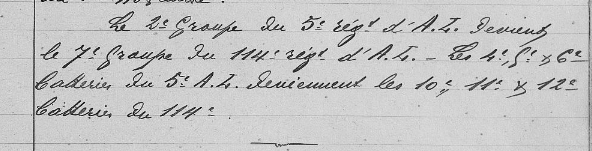 Le 2e Groupe du 5e régt d'A.L. devient
le 7e Groupe du 114e régt d'A.L. - Les 4e, 5e & 6e
batteries du 5e A.L. deviennent les 10e, 11e & 12e
batteries du 114e.